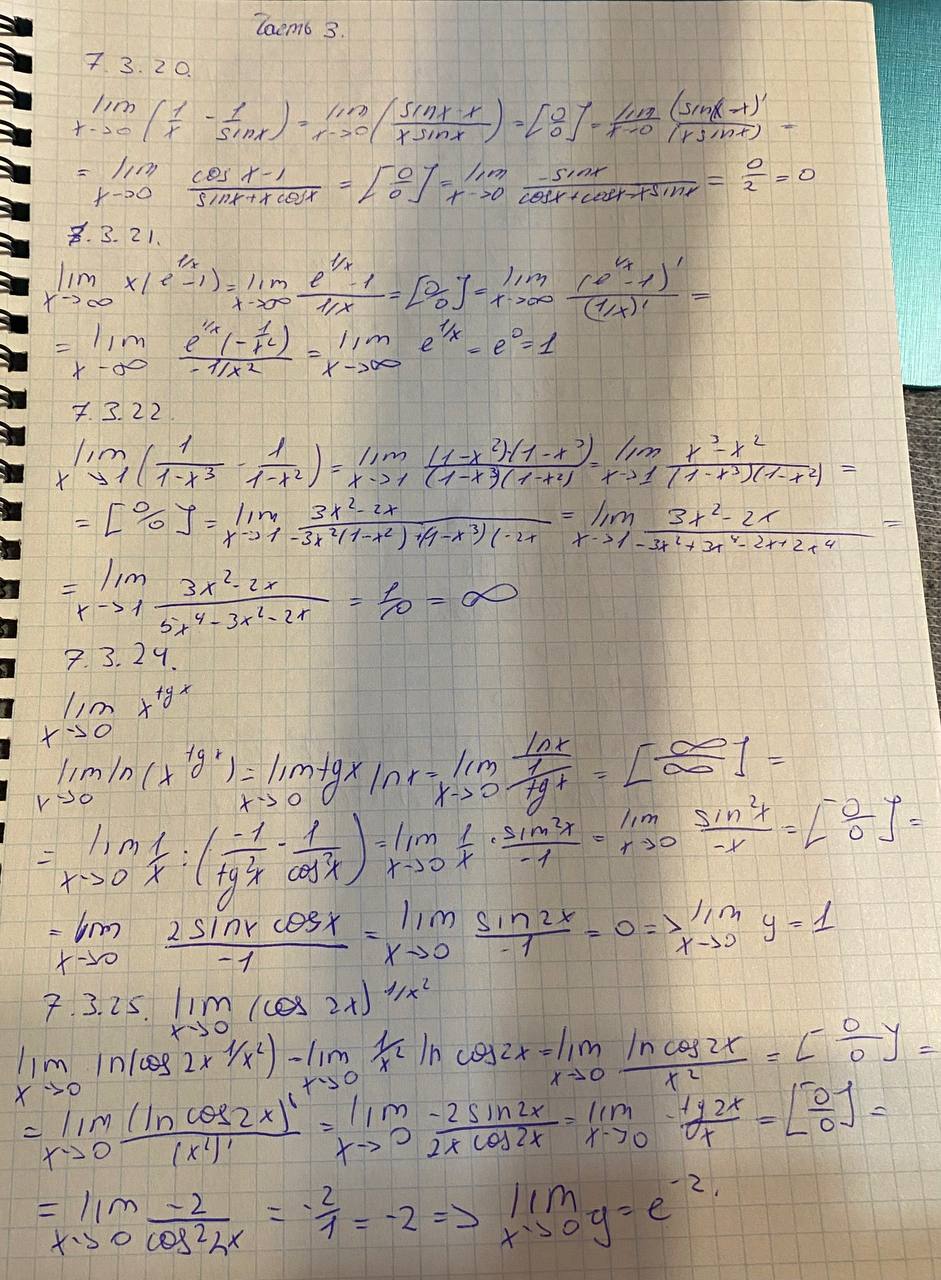 Часть 3.
7.3.20.
lim x→0 (1/x - 1/sinx) = lim x→0 (sinx-x / x sinx) = [0/0] = lim x→0 (sinx-x)' / (x sinx)' =
= lim x→0 cos x-1 / sinx+x cosx = [0/0] = lim x→0 -sinx / cosx+cosx-xsinx = 0/2 = 0
7.3.21.
lim x→∞ x(e^1/x -1) = lim x→∞ e^1/x -1 / 1/x = [0/0] = lim x→∞ (e^1/x -1)' / (1/x)' =
= lim x→∞ e^1/x (-1/x²) / -1/x² = lim x→∞ e^1/x = e^0 = 1
7.3.22.
lim x→1 (1/1-x³ - 1/1-x²) = lim x→1 (1-x²)-(1-x³) / (1-x³)(1-x²) = lim x→1 x³-x² / (1-x³)(1-x²) =
= [0/0] = lim x→1 3x²-2x / -3x²(1-x²)+(1-x³)(-2x = lim x→1 3x²-2x / -3x²+3x⁴-2x+2x⁴ =
= lim x→1 3x²-2x / 5x⁴-3x²-2x = 1/0 = ∞
7.3.24.
lim x→0 x^tgx
lim x→0 ln(x^tgx) = lim x→0 tgx lnx = lim x→0 lnx / 1/tgx = [∞/∞] =
= lim x→0 1/x : (-1/tg²x · 1/cos²x) = lim x→0 1/x · sin²x/-1 = lim x→0 sin²x/-x = [0/0] =
= lim x→0 2sinx cosx / -1 = lim x→0 sin2x / -1 = 0 => lim x→0 y = 1
7.3.25. lim x→0 (cos 2x)^1/x²
lim x→0 ln(cos 2x^1/x²) = lim x→0 1/x² ln cos2x = lim x→0 ln cos2x / x² = [0/0] =
= lim x→0 (ln cos2x)' / (x²)' = lim x→0 -2sin2x / 2x cos2x = lim x→0 -tg2x / x = [0/0] =
= lim x→0 -2 / cos²2x = -2/1 = -2 => lim x→0 y = e^-2.